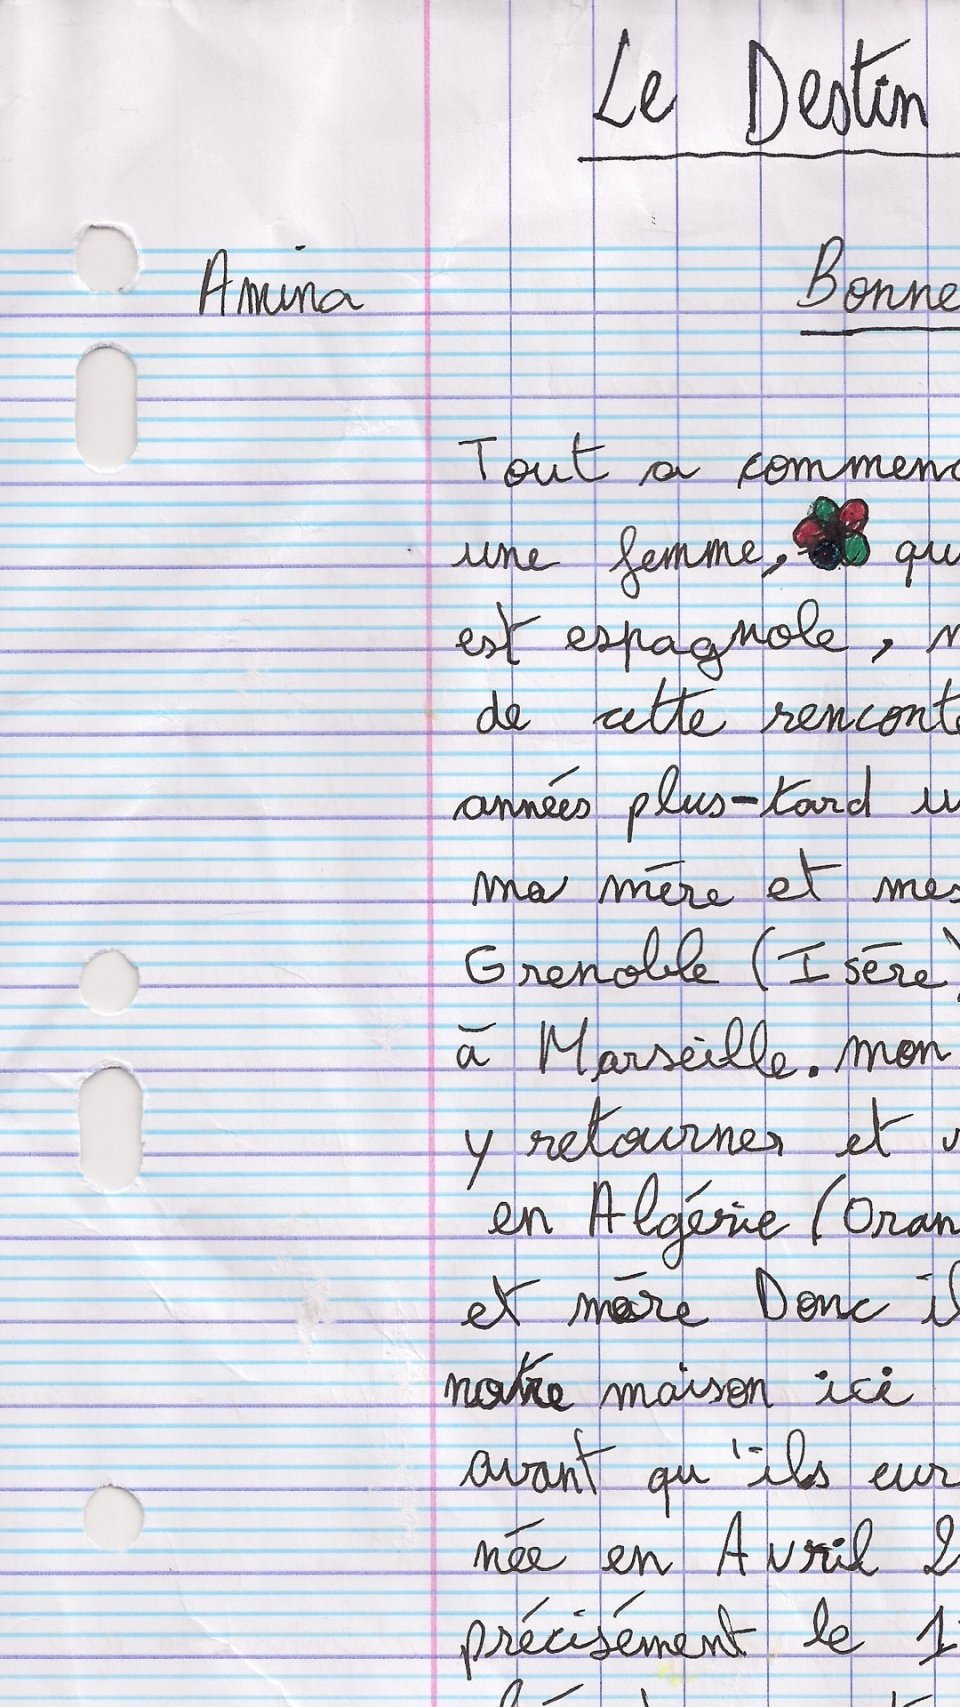 Le Destin
Amina Bonne
Tout a commenc
une femme, qu
est espagnole, m
de cette rencont
années plus-tard u
ma mère et mes
Grenoble (Isère)
à Marseille. mon
y retourner et v
en Algérie (Oran
et mère Donc il
notre maison ici
avant qu'ils eur
née en Avril 2
précisément le 1